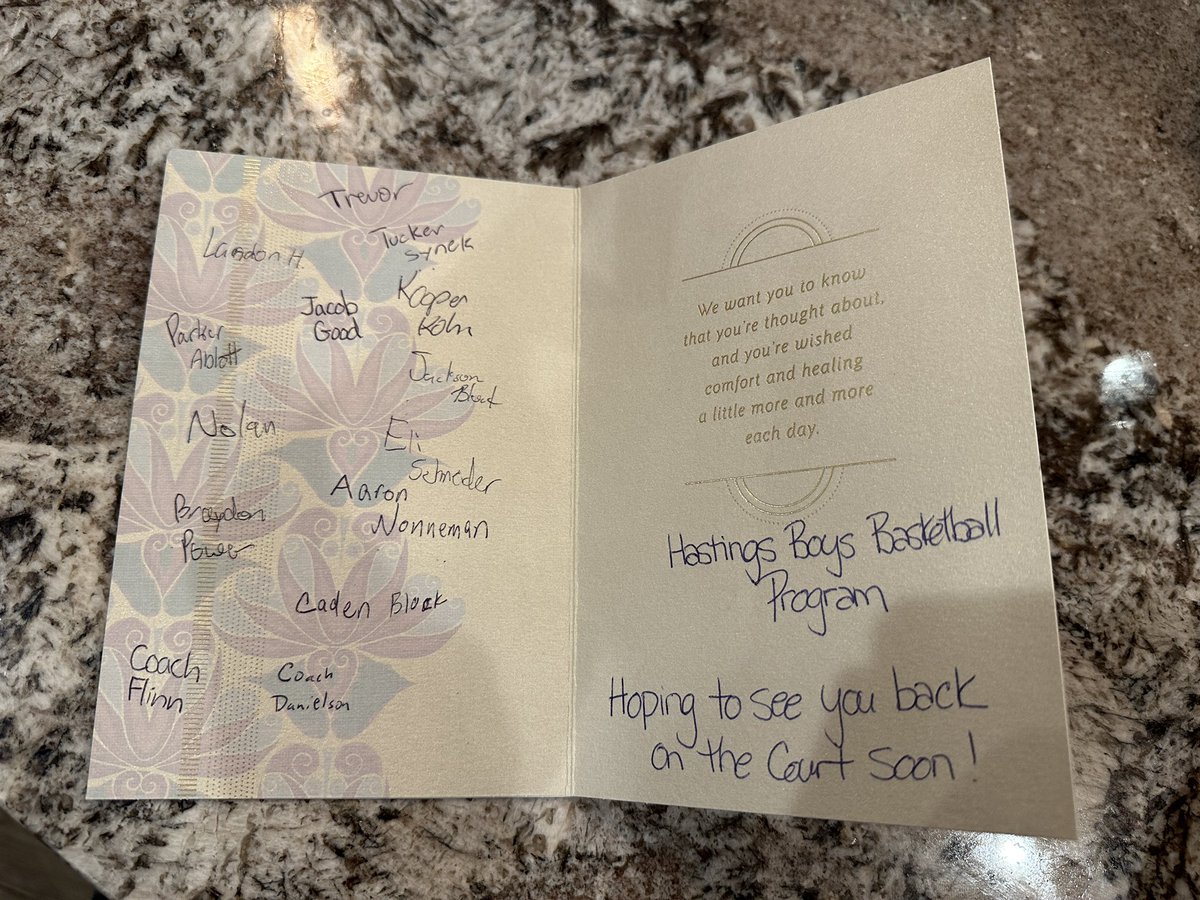 Trevor
Landon H.
Tucker
Synek
Jacob
Good
Kooper
Kohn
Parker
Ablott
Jackson
Block
Nolan
Eli
Schneder
Aaron
Nonneman
Braydon
Power
Caden Block
Coach
Flinn
Coach
Danielson
We want you to know
that you're thought about,
and you're wished
comfort and healing
a little more and more
each day.
Hastings Boys Basketball
Program
Hoping to see you back
on the Court Soon!